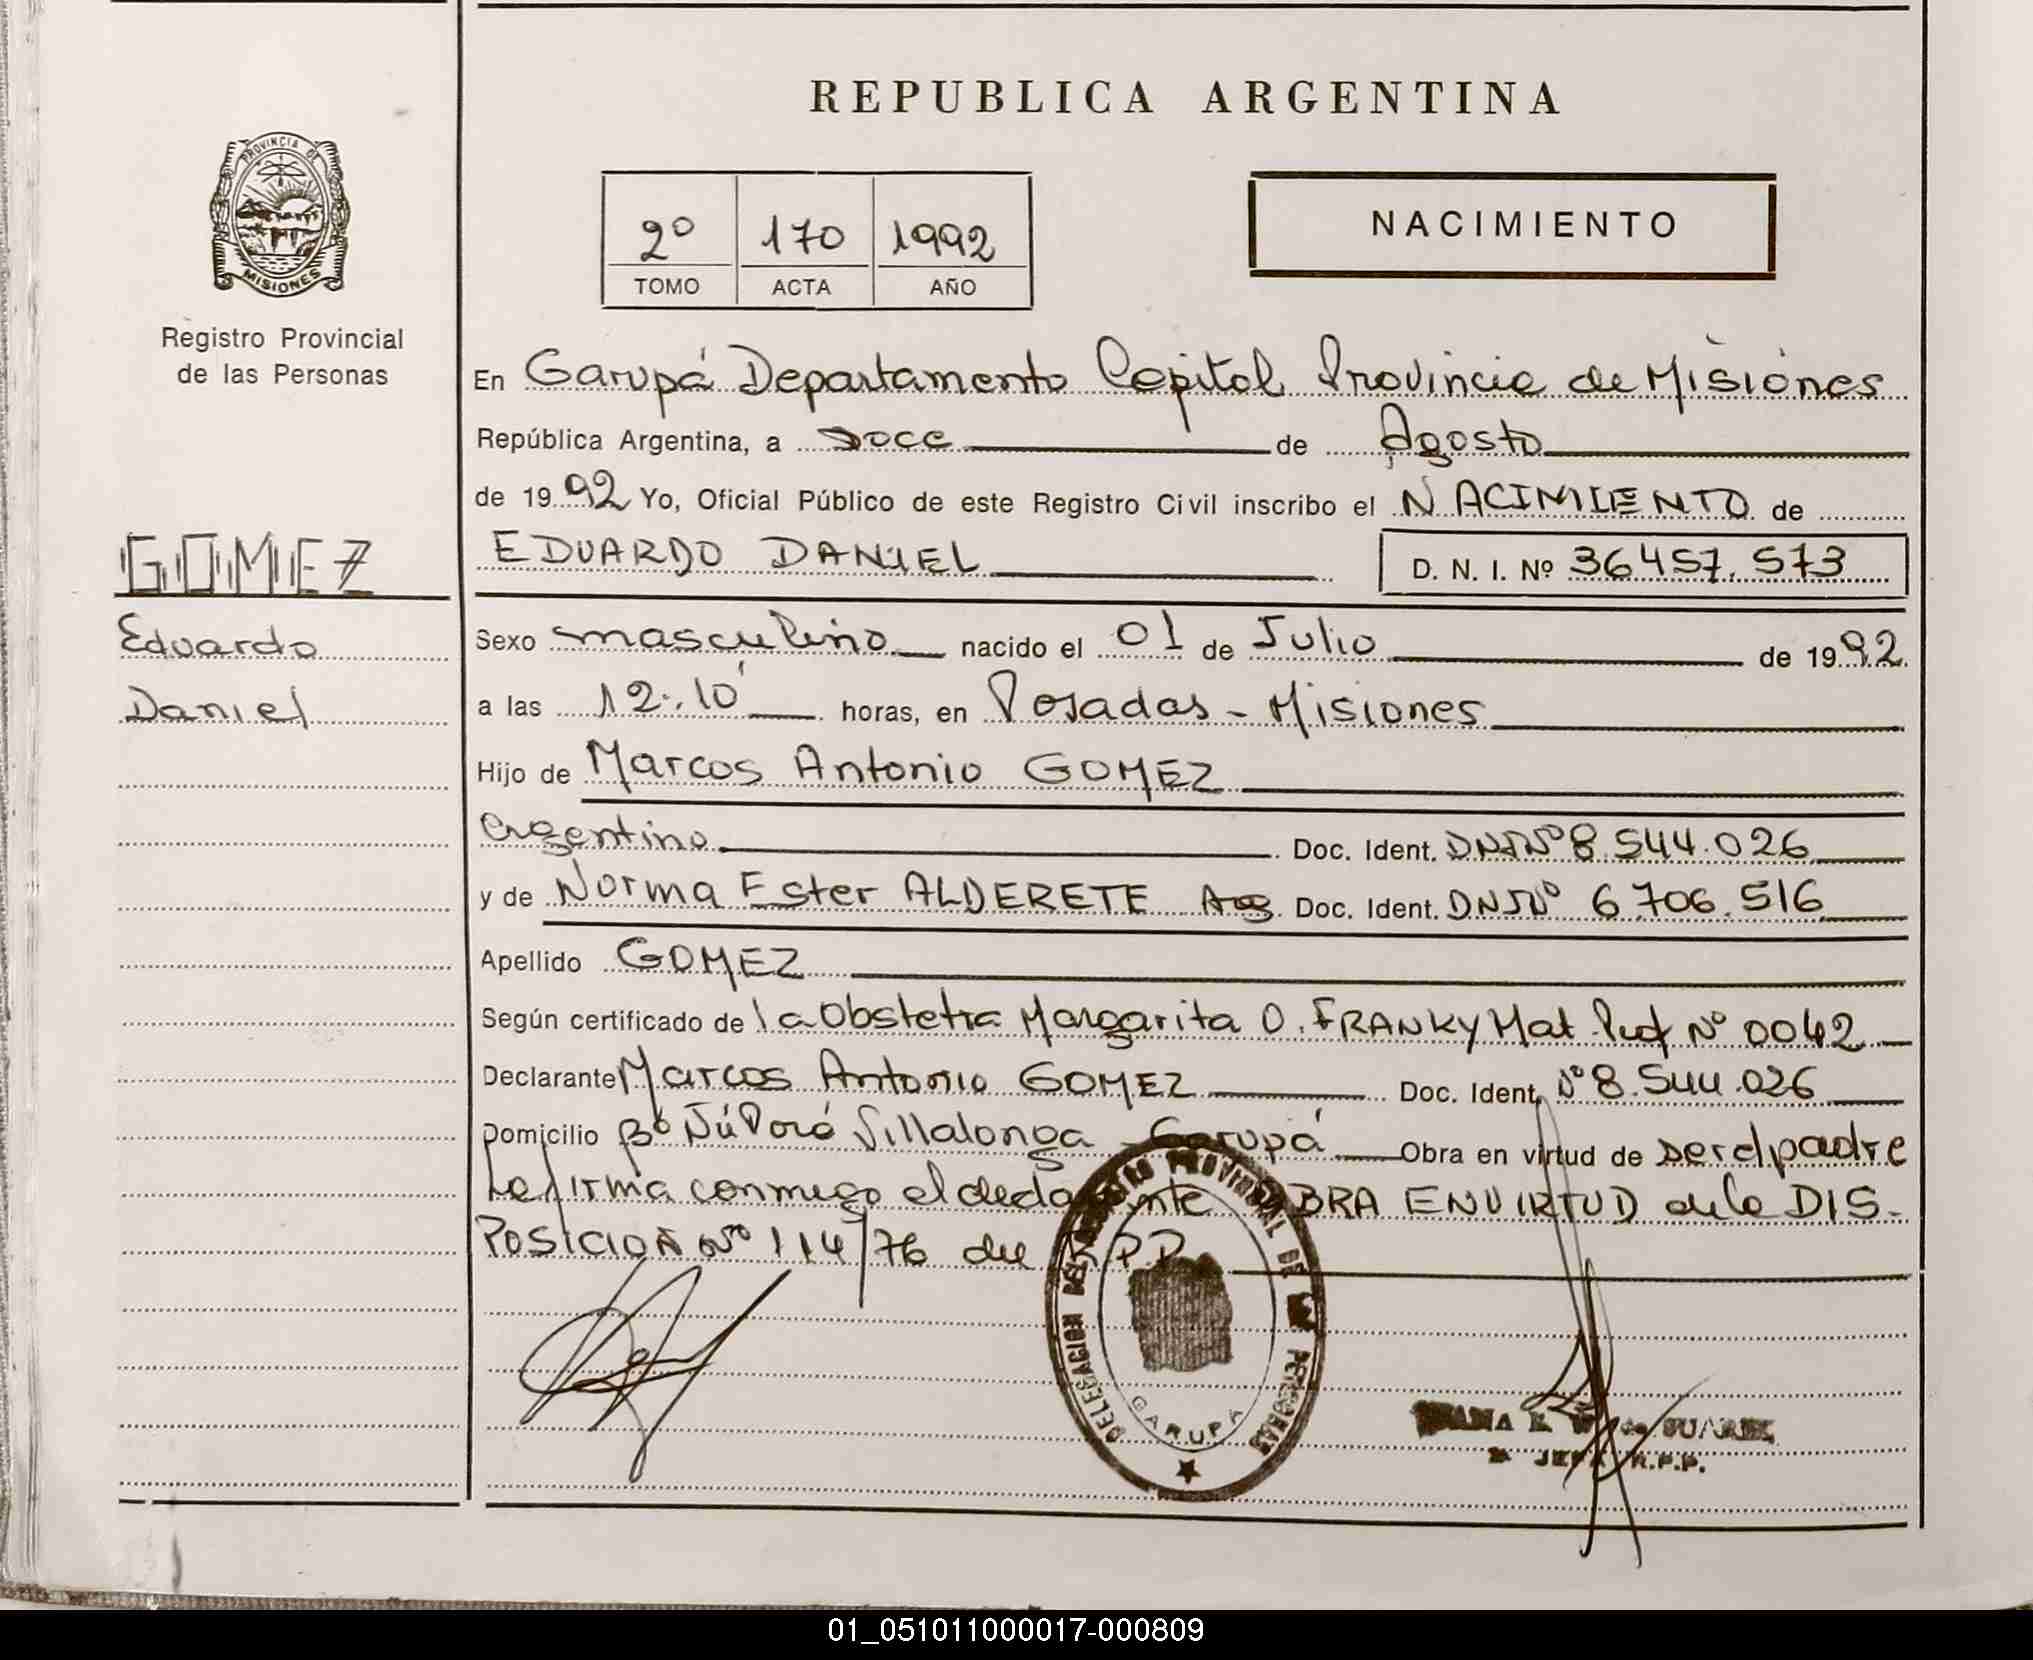 REPUBLICA ARGENTINA
PROVINCIA DE
MISIONES
Registro Provincial
de las Personas
2º 170 1992
TOMO ACTA AÑO
NACIMIENTO
GOMEZ
Eduardo
Daniel
En Garupá Departamento Capital Provincia de Misiones
República Argentina, a Doce de Agosto
de 1992 Yo, Oficial Público de este Registro Civil inscribo el NACIMIENTO de
EDUARDO DANIEL D. N. I. Nº 36457.573
Sexo masculino nacido el 01 de Julio de 1992.
a las 12:10' horas, en Posadas - Misiones
Hijo de Marcos Antonio GOMEZ
argentino Doc. Ident. DNI Nº 8.544.026
y de Norma Ester ALDERETE Arg. Doc. Ident. DNI Nº 6.706.516
Apellido GOMEZ
Según certificado de la Obstetra Margarita O. FRANKY Mat. Prof Nº 0042
Declarante Marcos Antonio GOMEZ Doc. Ident. Nº 8.544.026
Domicilio Bº Ñú Porá Villalonga - Garupá Obra en virtud de ser el padre
Le firma conmigo el declarante OBRA EN VIRTUD de la DIS-
POSICION Nº 114/76 del R.P.P.
DELEGACION DEL REGISTRO PROVINCIAL DE PERSONAS
GARUPÁ
de SUAREZ
JEFA R.P.P.
01_051011000017-000809